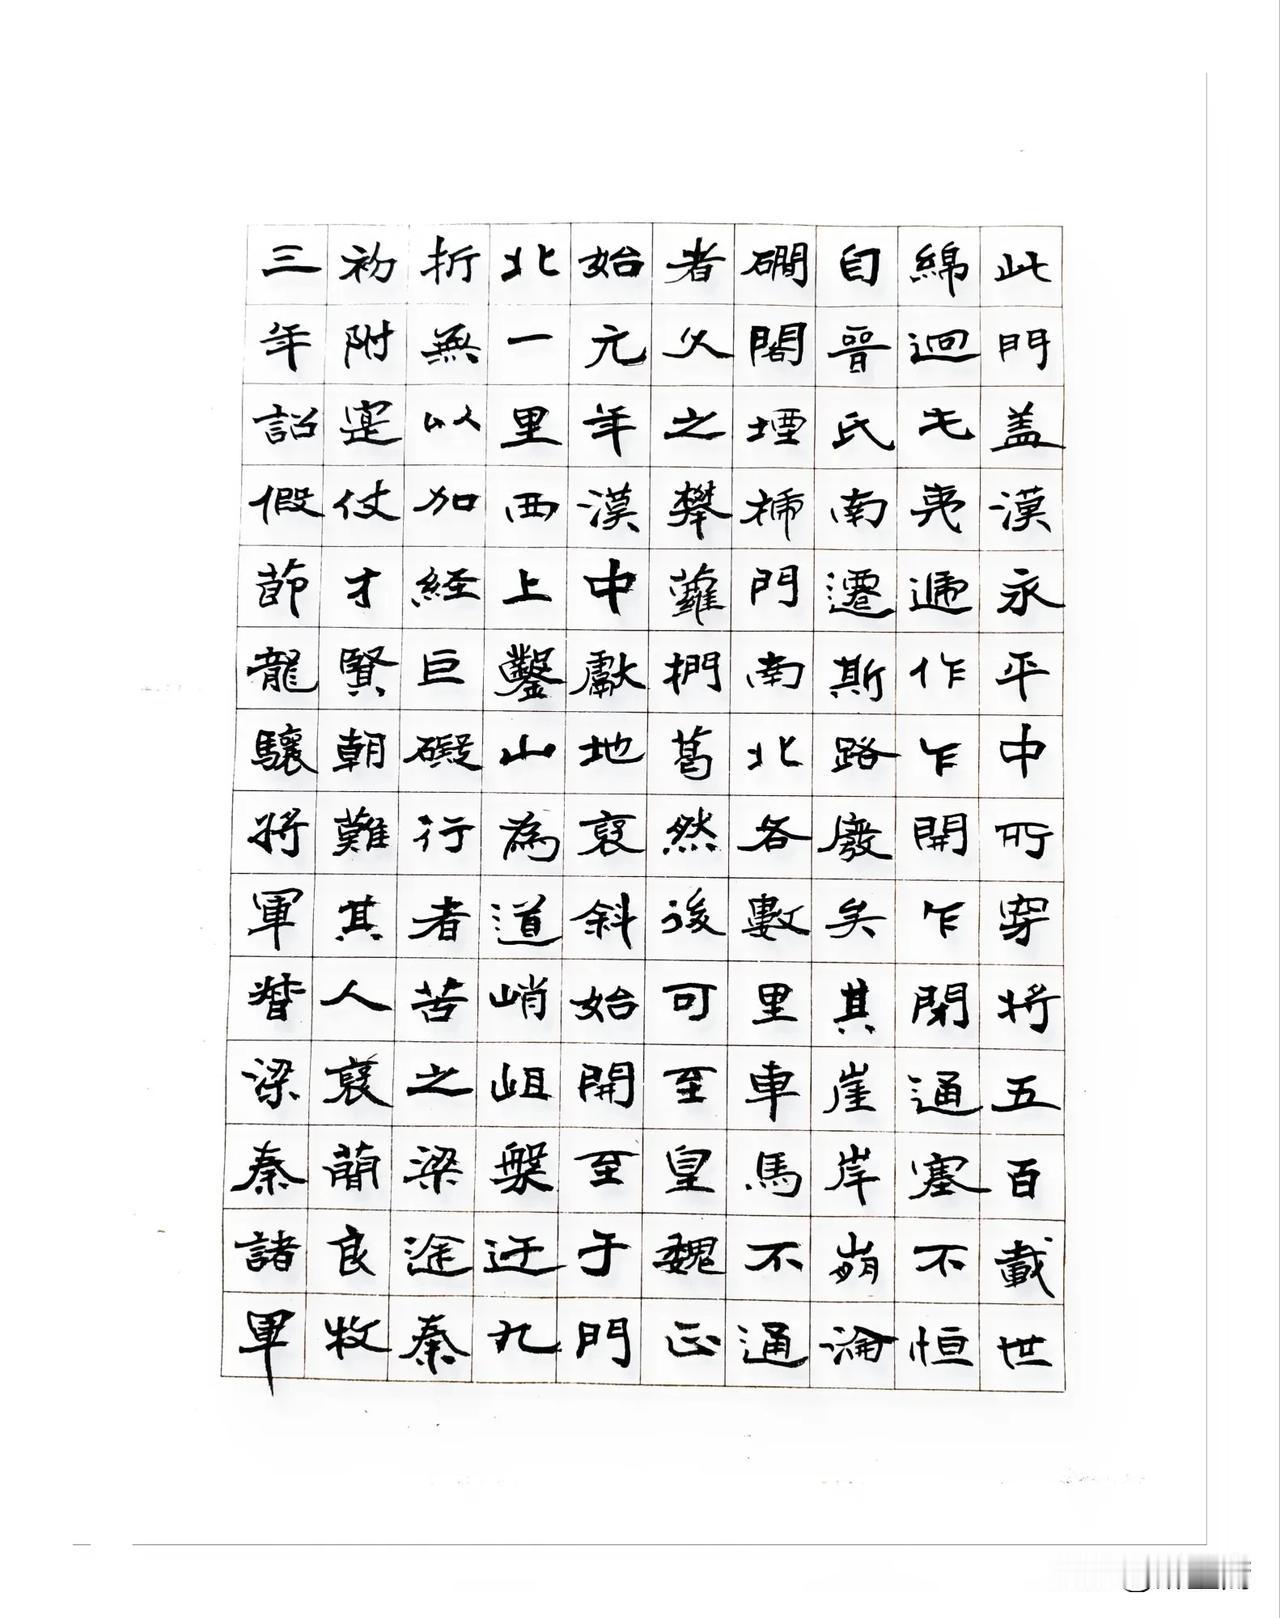 此門盖漢永平中所穿将五百載世
綿迴屯夷遞作乍開乍閉通塞不恒
自晉氏南遷斯路廢矣其崖岸崩淪
磵閣堙褫門南北各數里車馬不通
者久之攀蘿捫葛然後可至皇魏正
始元年漢中獻地褒斜始開至于門
北一里西上鑿山為道峭岨槃迂九
折無以加經巨礙行者苦之梁途秦
初附寔仗才賢朝難其人褒簡良牧
三年詔假節龍驤将軍督梁秦諸軍